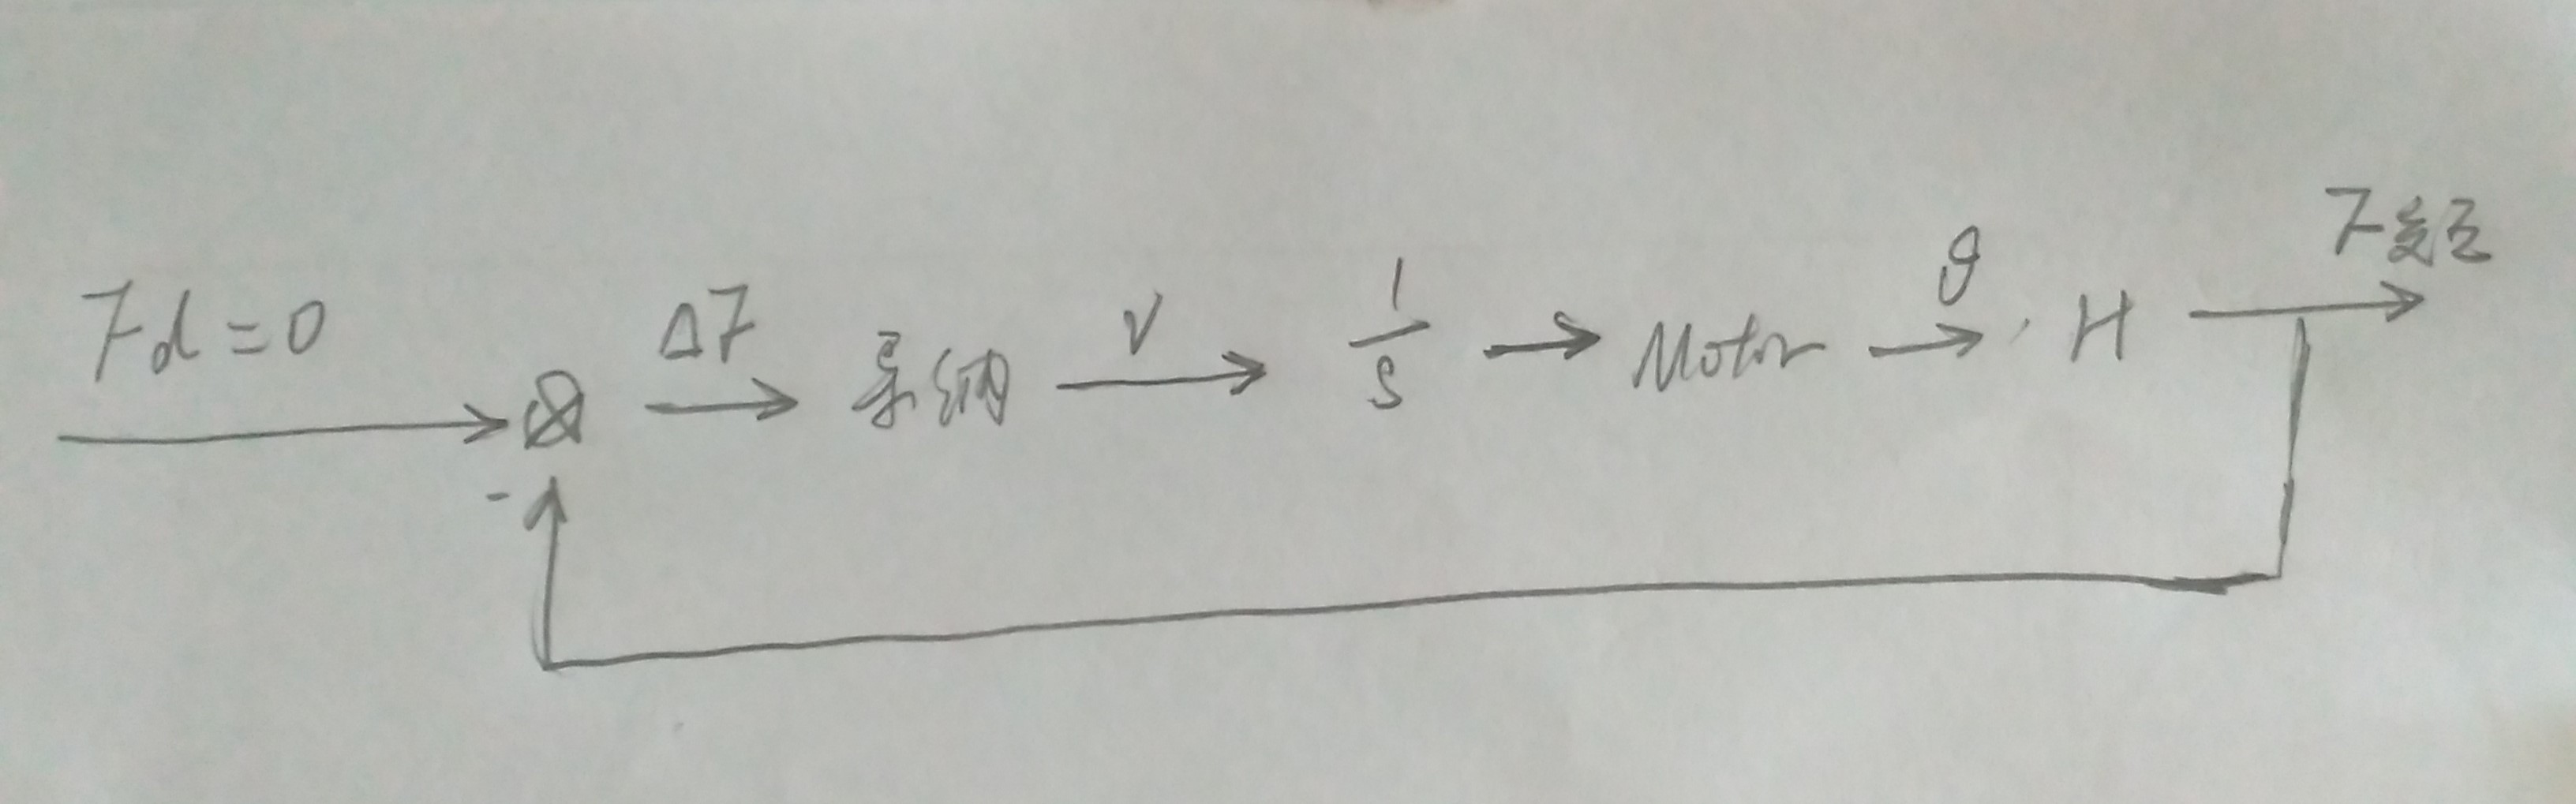 Fd=0
ΔF
导纳
V
1/s
Motor
θ
H
F交互
-